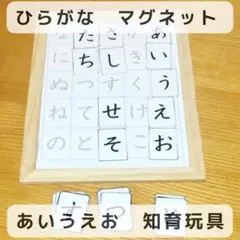 ひらがな　マグネット
あいうえお
かきくけこ
さしすせそ
たちつてと
なにぬねの
す
つ
あいうえお　知育玩具